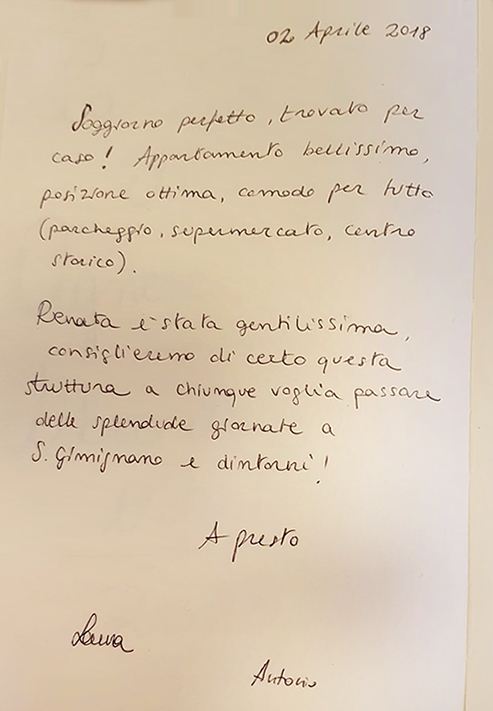 02 Aprile 2018
Soggiorno perfetto, trovato per
caso! Appartamento bellissimo,
posizione ottima, comodo per tutto
(parcheggio, supermercato, centro
storico).
Renata è stata gentilissima,
consiglieremo di certo questa
struttura a chiunque voglia passare
delle splendide giornate a
S. Gimignano e dintorni!
A presto
Laura
Antonio